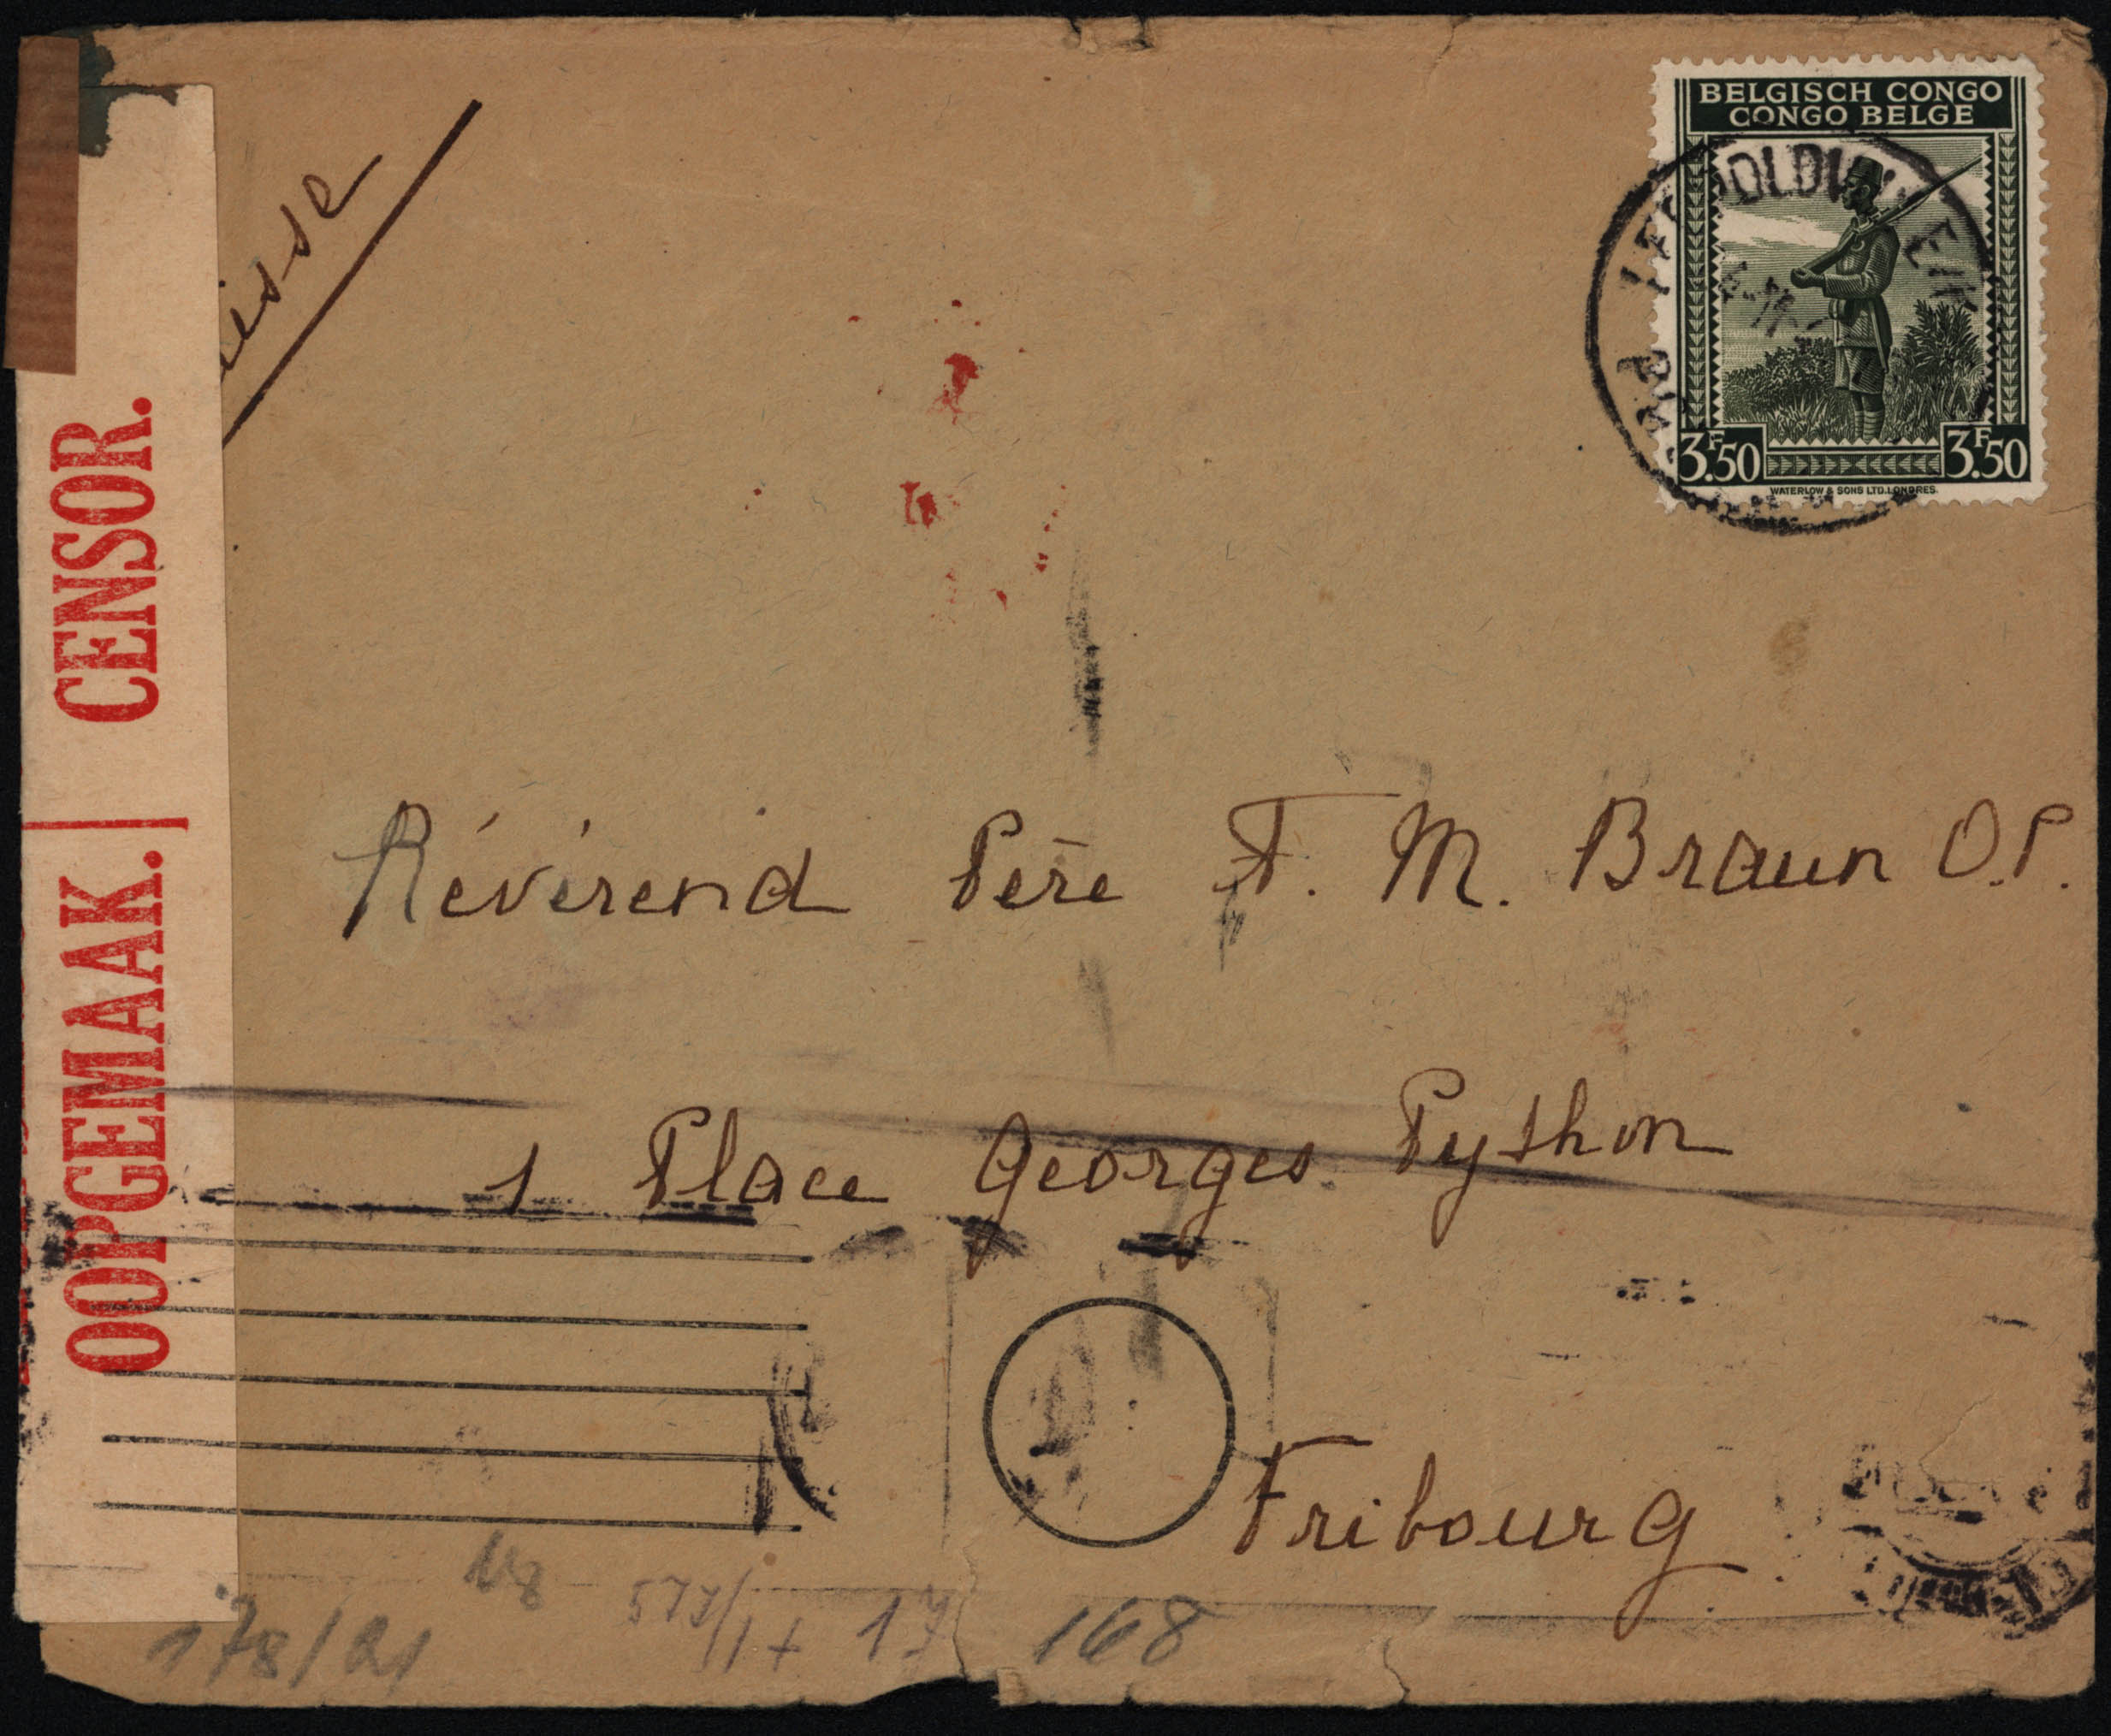 BELGISCH CONGO
CONGO BELGE
3F.50 3F.50
WATERLOW & SONS LTD. LONDRES.
OOPGEMAAK. | CENSOR.
Révérend Père F. M. Braun O.P.
1 Place Georges Python
Fribourg
178/21
168